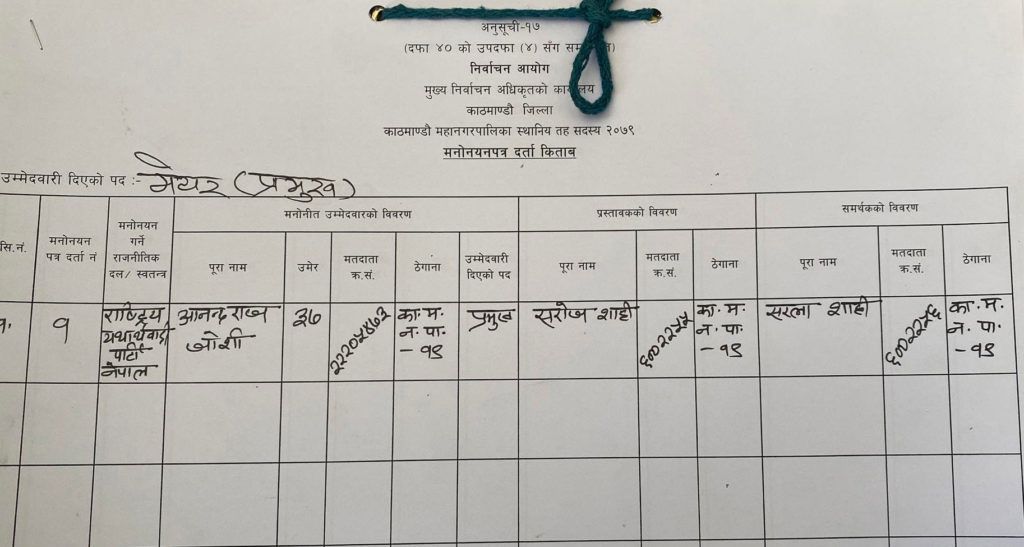 अनुसूची-१७
(दफा ४० को उपदफा (४) सँग सम
निर्वाचन आयोग
मुख्य निर्वाचन अधिकृतको कार्यालय
काठमाण्डौ जिल्ला
काठमाण्डौ महानगरपालिका स्थानिय तह सदस्य २०७९
मनोनयनपत्र दर्ता किताब
उम्मेदवारी दिएको पद :- मेयर (प्रमुख)
सि.नं.
मनोनयन
पत्र दर्ता नं
मनोनयन
गर्ने
राजनीतिक
दल/ स्वतन्त्र
मनोनीत उम्मेदवारको विवरण
पूरा नाम
उमेर
मतदाता
क्र.सं.
ठेगाना
उम्मेदवारी
दिएको पद
प्रस्तावकको विवरण
पूरा नाम
मतदाता
क्र.सं.
ठेगाना
समर्थकको विवरण
पूरा नाम
मतदाता
क्र.सं.
ठेगाना
१.
१
राष्ट्रिय
यथार्थवादी
पार्टी
नेपाल
आनन्द राज
जोशी
३७
२२२०५४७३
का. म.
न. पा.
- १९
प्रमुख
सरोज शाही
का. म.
न. पा.
- १९
सरला शाही
का. म.
न. पा.
- १९